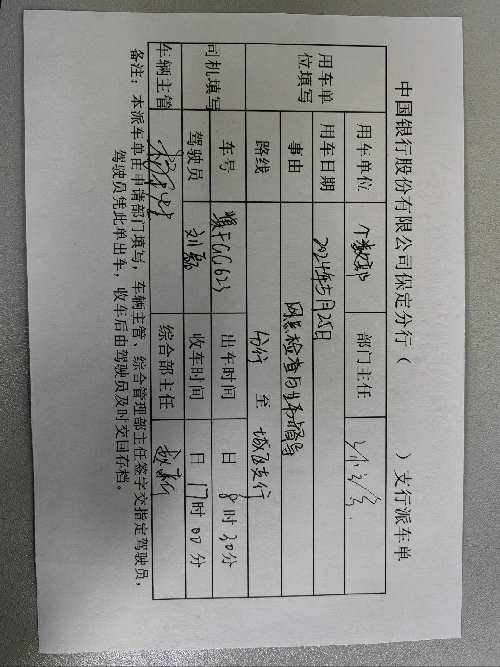 中国银行股份有限公司保定分行（ ）支行派车单
用车单位填写 用车单位 个数部 部门主任
用车日期 2024年5月25日
事由 网点检查与业务督导
路线 分行 至 城区支行
司机填写 车号 冀FGC623 出车时间 日 8时30分
驾驶员 刘磊 收车时间 日 17时00分
车辆主管 综合部主任
备注：本派车单由申请部门填写，车辆主管、综合管理部主任签字交指定驾驶员，
驾驶员凭此单出车，收车后由驾驶员及时交回存档。